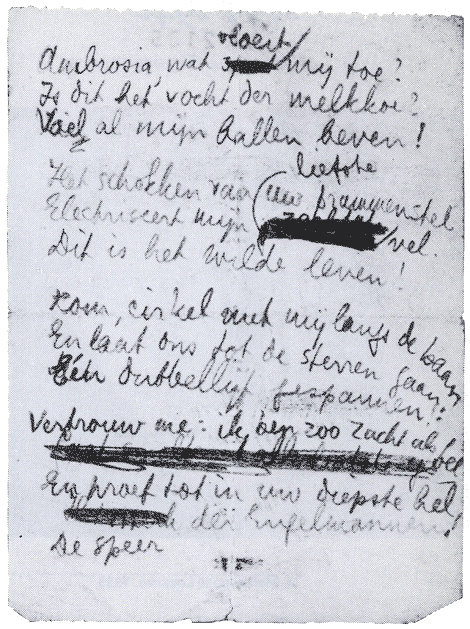 vloeit
Ambrosia, wat mij toe?
Is dit het vocht der melkkoe?
Voel al mijn ballen beven!
liefste
Het schokken van uw prammenstel
Electriseert mijn vel.
Dit is het wilde leven!
Kom, cirkel met mij langs de baan
En laat ons tot de sterren gaan:
Eén dubbellijf gespannen!
Vertrouw me: ik ben zoo zacht als
En proef tot in uw diepste hel,
der Engelmannen!
De speer